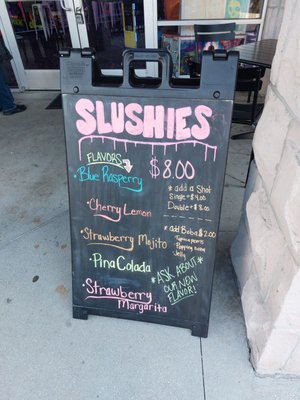 SLUSHIES
FLAVORS
$8.00
• Blue Rasperry
• Cherry Lemon
• Strawberry Mojito
• Pina Colada
• Strawberry
Margarita
* add a Shot
Single + $4.00
Double + $8.00
* add Boba $2.00
Tapioca pearls
Popping boba
Jelly
* ASK ABOUT *
OUR NEW
FLAVOR!